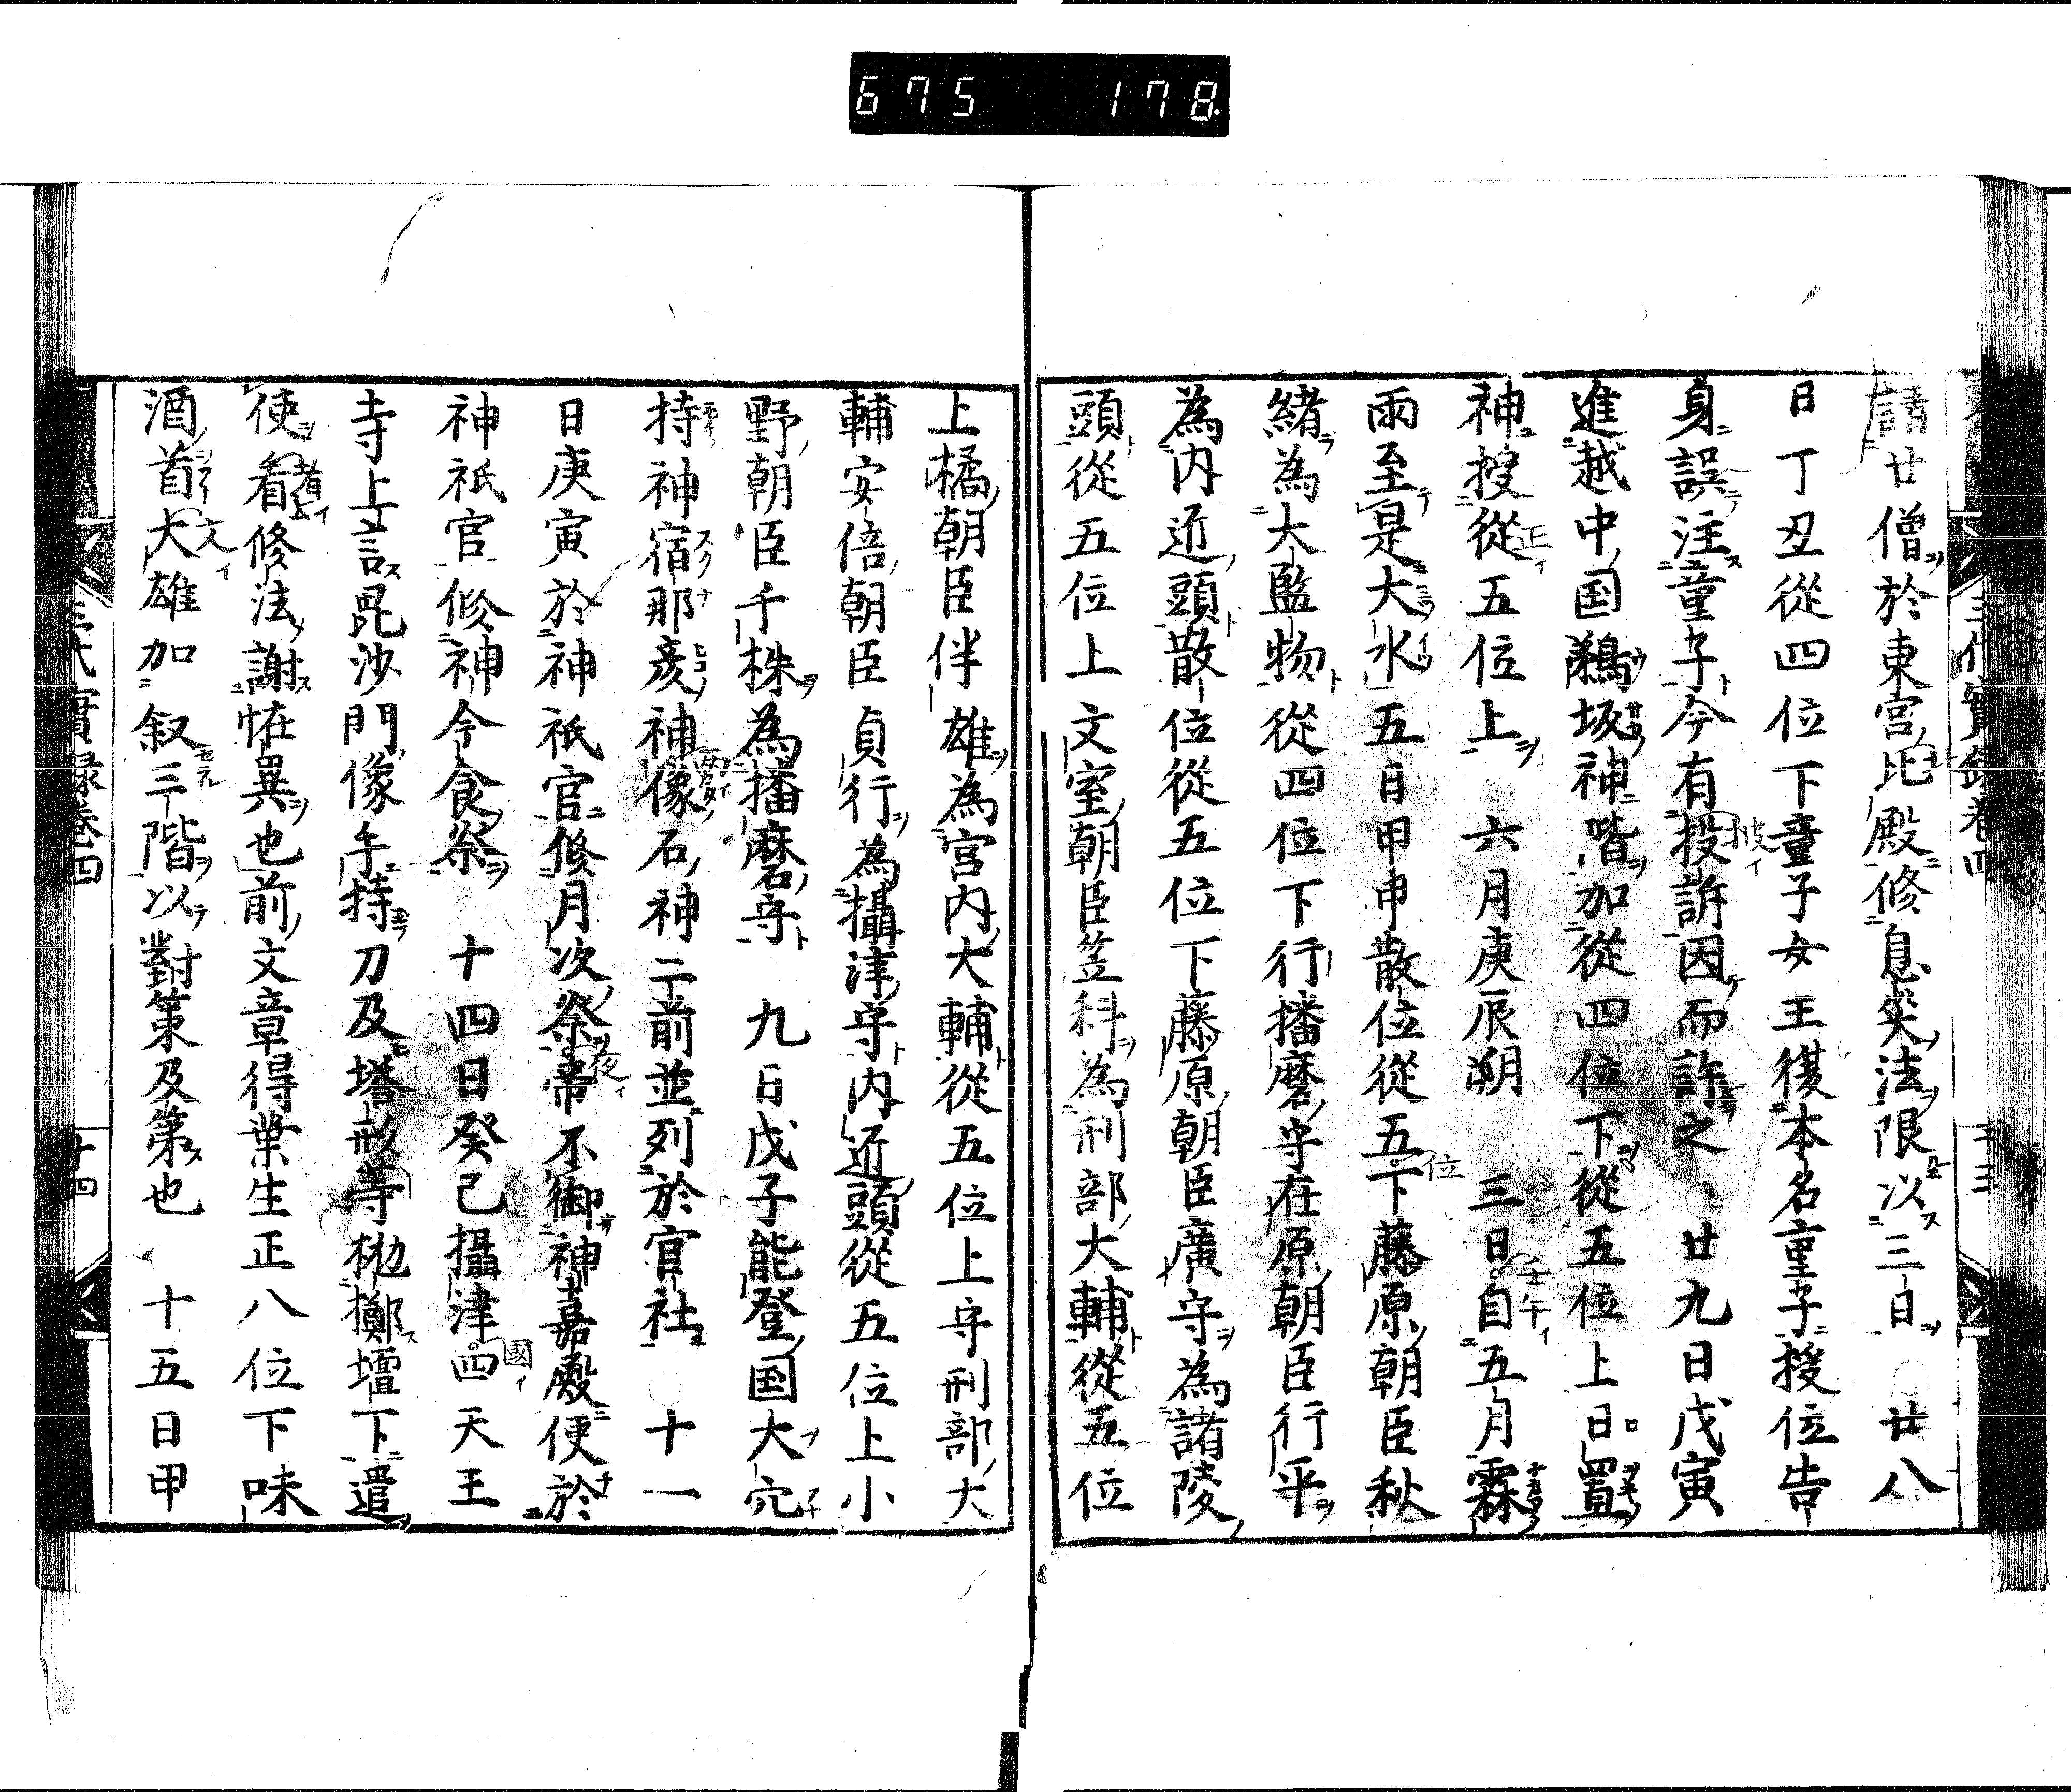 675 178
請廿僧於東宮北殿修息災法限以三日 廿八
日丁丑從四位下童子女王復本名童子授位告
身誤注童子今有投訴因而許之 廿九日戊寅
進越中国鵜坂神階加從四位下從五位上日置
神授從五位上 六月庚辰朔 三日自五月霖
雨至是大水五日甲申散位從五下藤原朝臣秋
緒為大監物從四位下行播磨守在原朝臣行平
為内近頭散位從五位下藤原朝臣廣守為諸陵
頭從五位上文室朝臣笠科為刑部大輔從五位
上橘朝臣伴雄為宮内大輔從五位上守刑部大
輔安倍朝臣貞行為攝津守内近頭從五位上小
野朝臣千株為播磨守 九日戊子能登国大穴
持神宿那彦神像石神二前並列於官社 十一
日庚寅於神祇官修月次祭帝不御神嘉殿便於
神祇官修神今食祭 十四日癸己攝津四天王
寺上言毘沙門像午持刀及塔形等拋擲壇下遣
使看修法謝恠異也前文章得業生正八位下味
酒首大雄加叙三階以對策及第也 十五日甲
三代實録卷四 十四